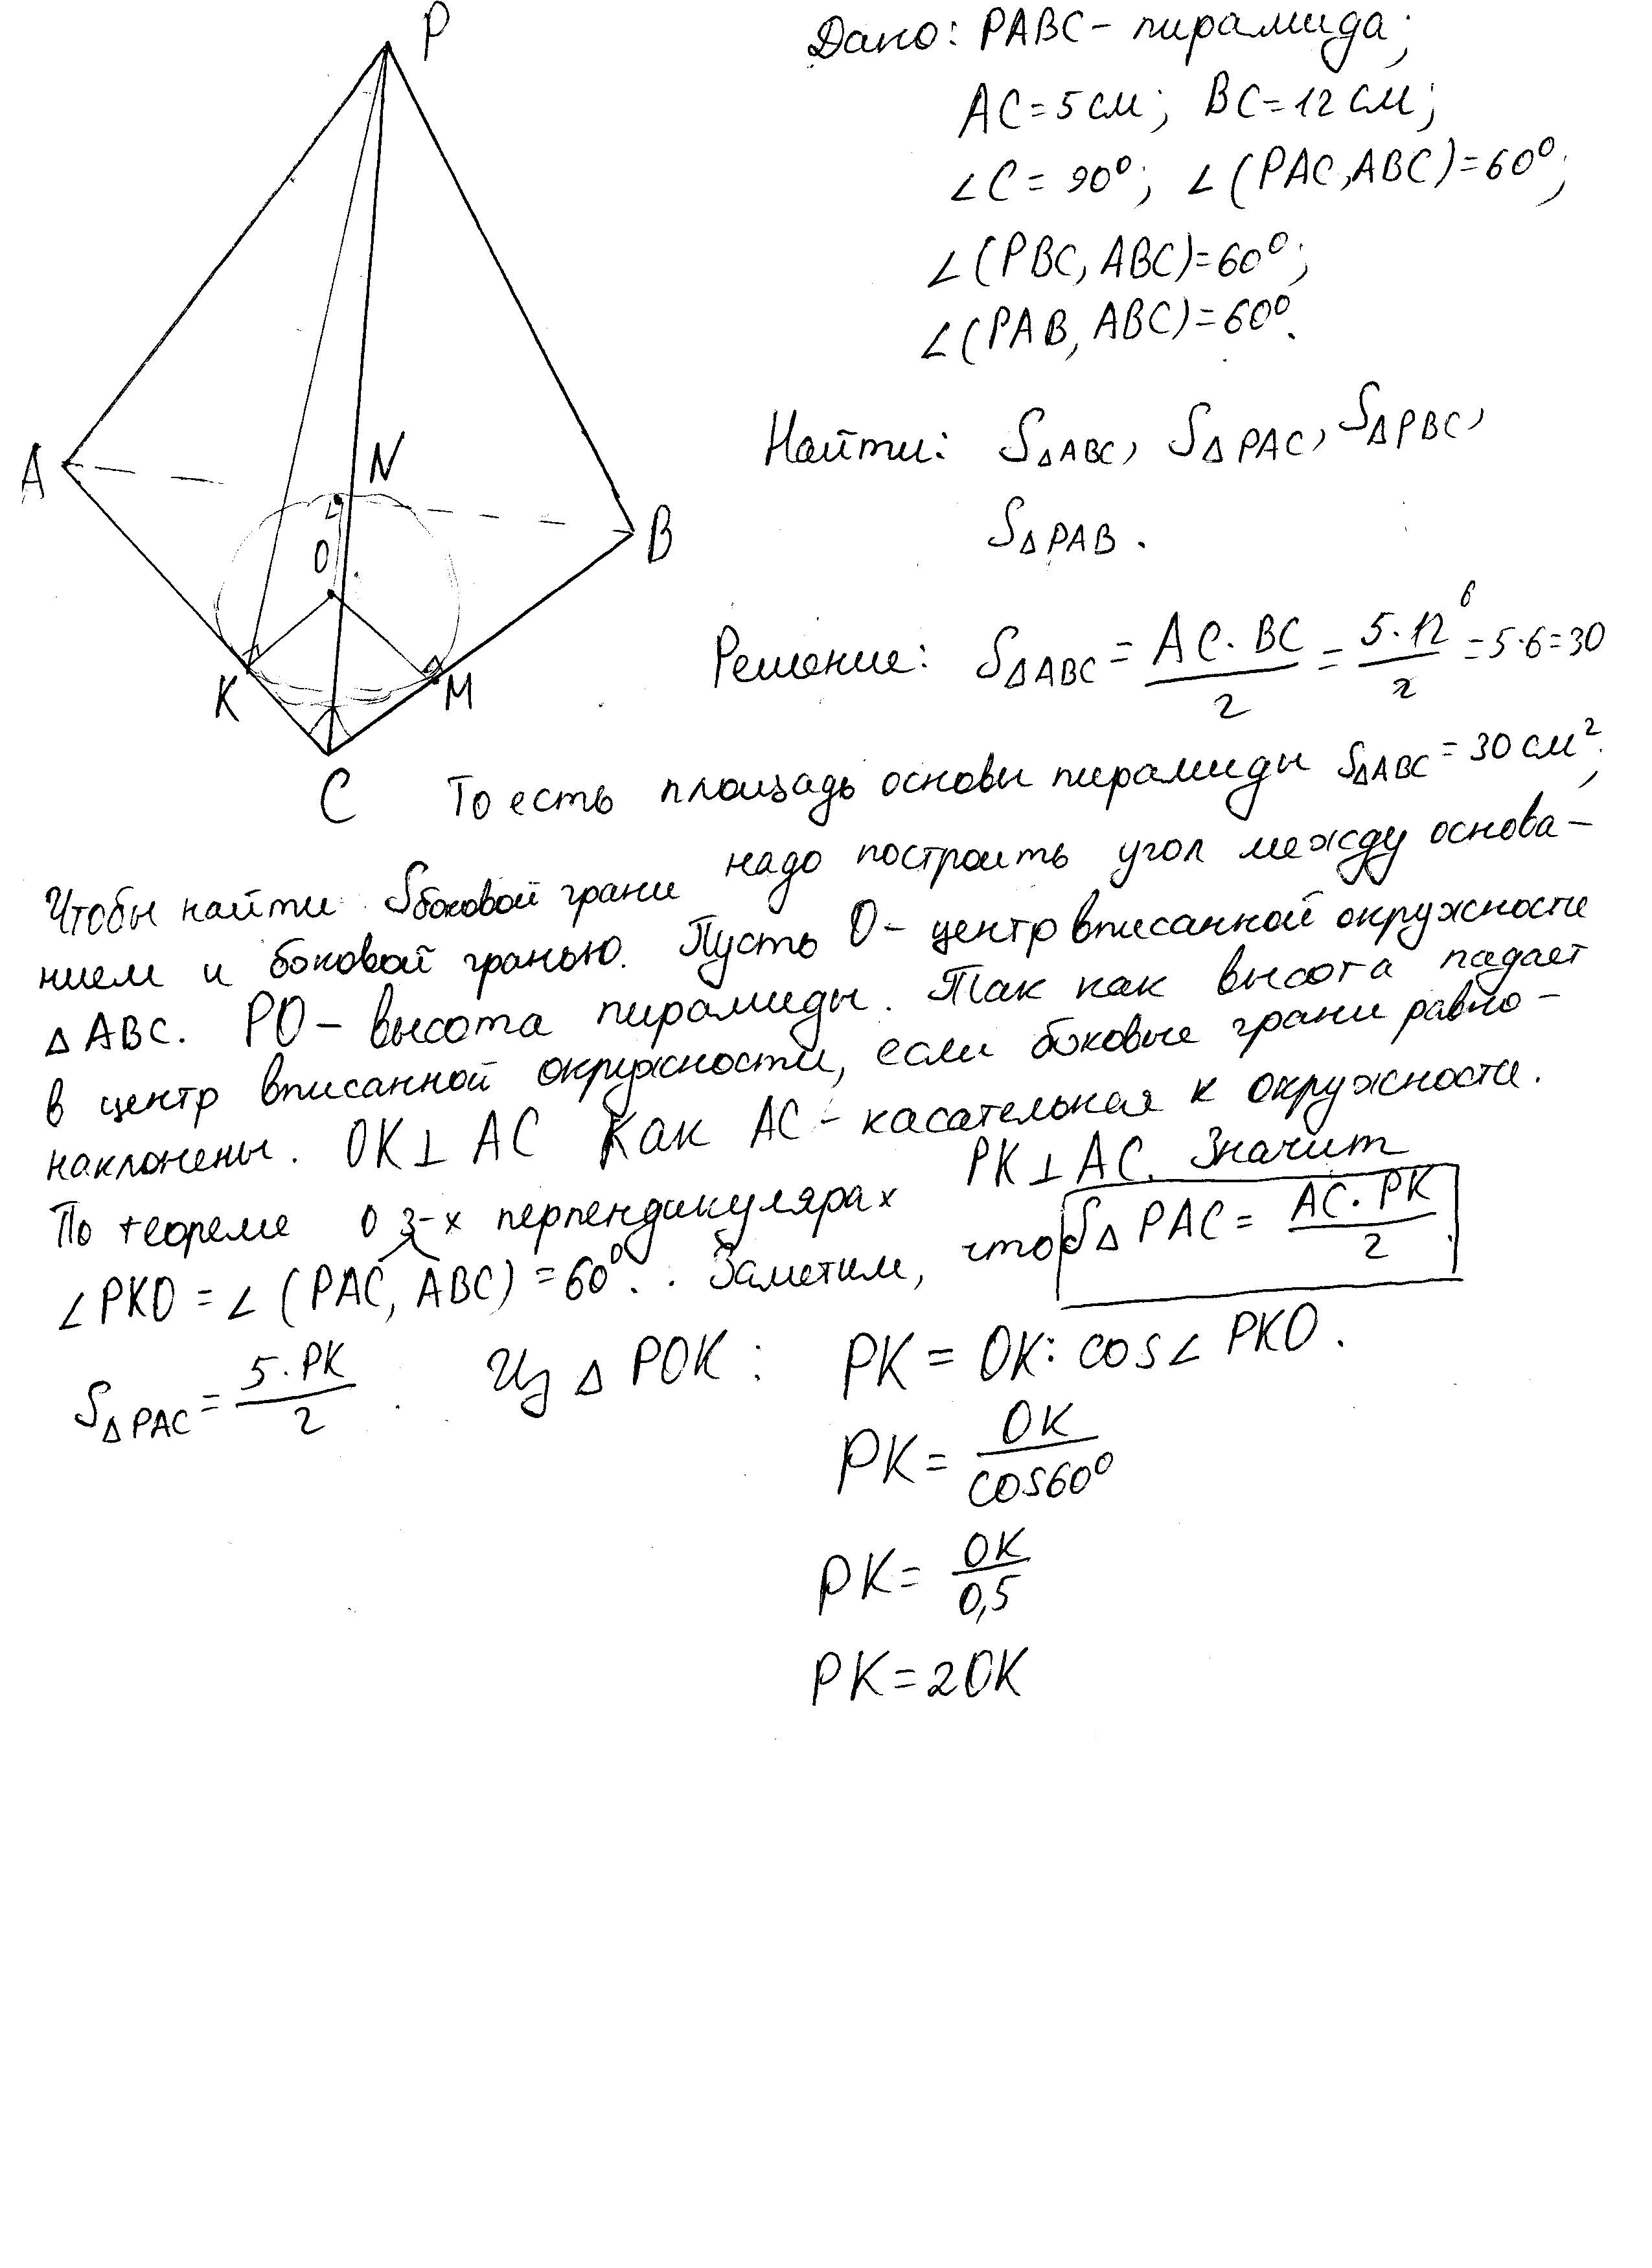 P
A
N
O
B
K
M
C
Дано: PABC - пирамида;
AC = 5 см; BC = 12 см;
∠C = 90°; ∠(PAC, ABC) = 60°;
∠(PBC, ABC) = 60°;
∠(PAB, ABC) = 60°.
Найти: S△ABC, S△PAC, S△PBC,
S△PAB.
Решение: S△ABC = AC·BC/2 = 5·12/2 6 = 5·6 = 30
То есть площадь основы пирамиды S△ABC = 30 см²;
Чтобы найти Sбоковой грани надо построить угол между основа-
нием и боковой гранью. Пусть O - центр вписанной окружности
△ABC. PO - высота пирамиды. Так как высота падает
в центр вписанной окружности, если боковые грани равно-
наклонены. OK ⊥ AC Как AC - касательная к окружности.
По теореме о 3-х перпендикулярах PK ⊥ AC. Значит
∠PKO = ∠(PAC, ABC) = 60°. Заметим, что S△PAC = AC·PK/2.
S△PAC = 5·PK/2. Из △POK: PK = OK : cos∠PKO.
PK = OK/cos60°
PK = OK/0,5
PK = 2OK